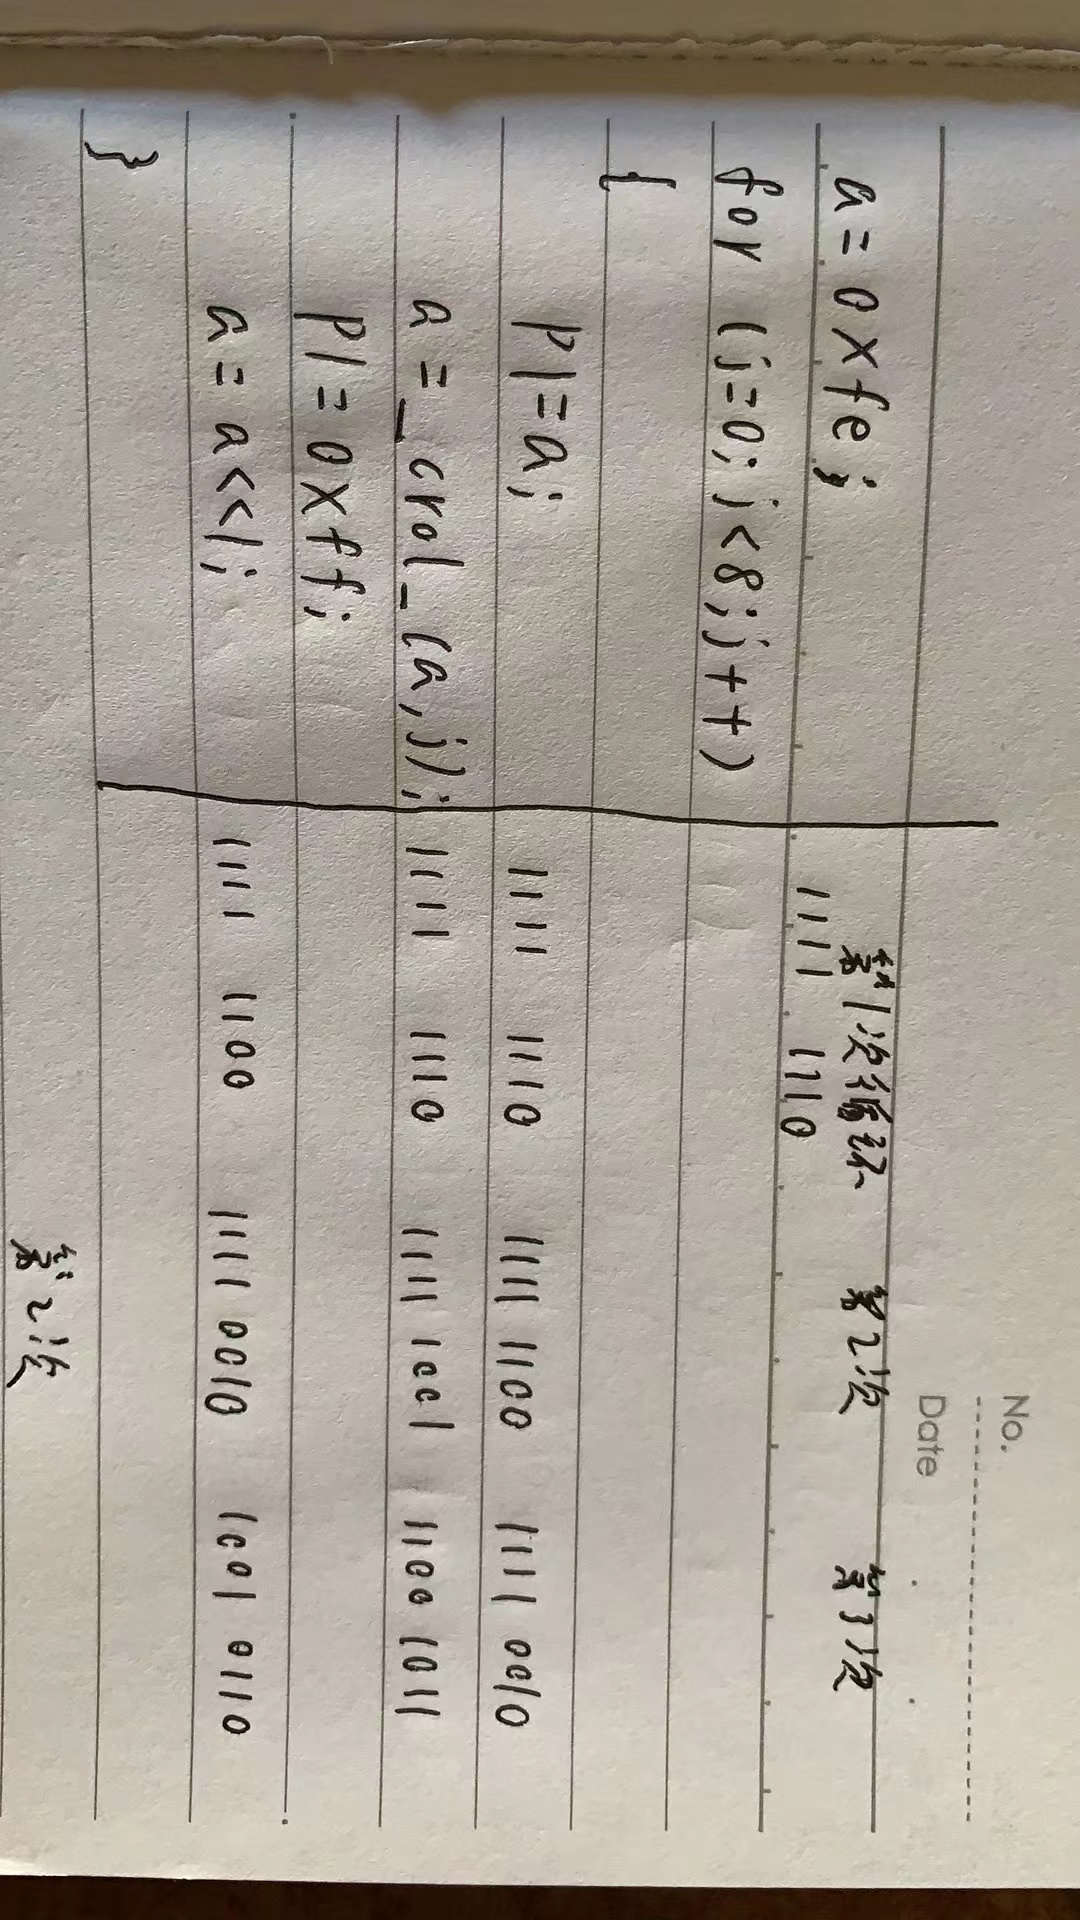 No.
Date
第1次循环 第2次 第3次
a=0xfe; 1111 1110
for (j=0; j<8; j++)
{
P1=a; 1111 1110 1111 1100 1111 0010
a=_crol_(a,j); 1111 1110 1111 1001 1100 1011
P1=0xff;
a=a<<1; 1111 1100 1111 0010 1001 0110
}
第2次